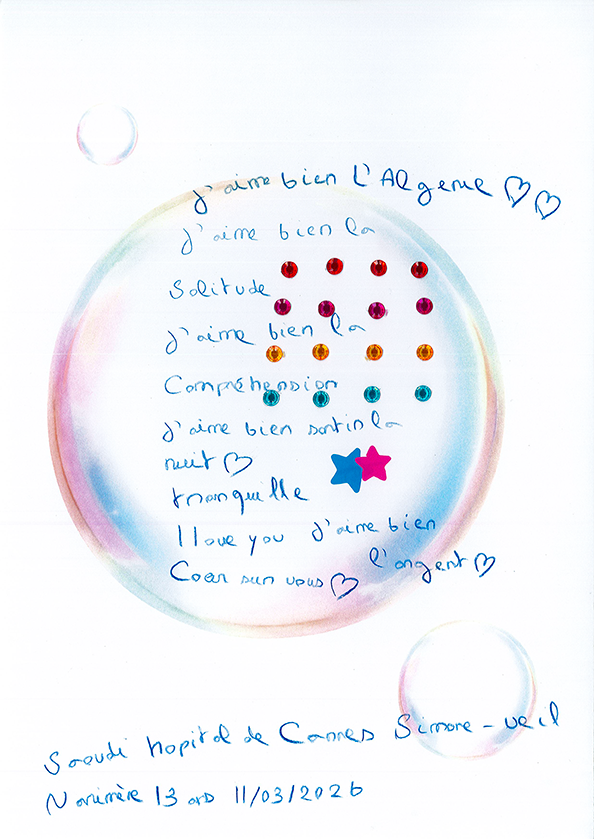 J'aime bien L'Algerie
J'aime bien la
Solitude
J'aime bien la
Compréhension
J'aime bien sortir la
nuit
tranquille
I love you J'aime bien
l'argent
Coeur sur vous
Saoudi hopital de Cannes Simone-veil
13 ans 11/03/2026